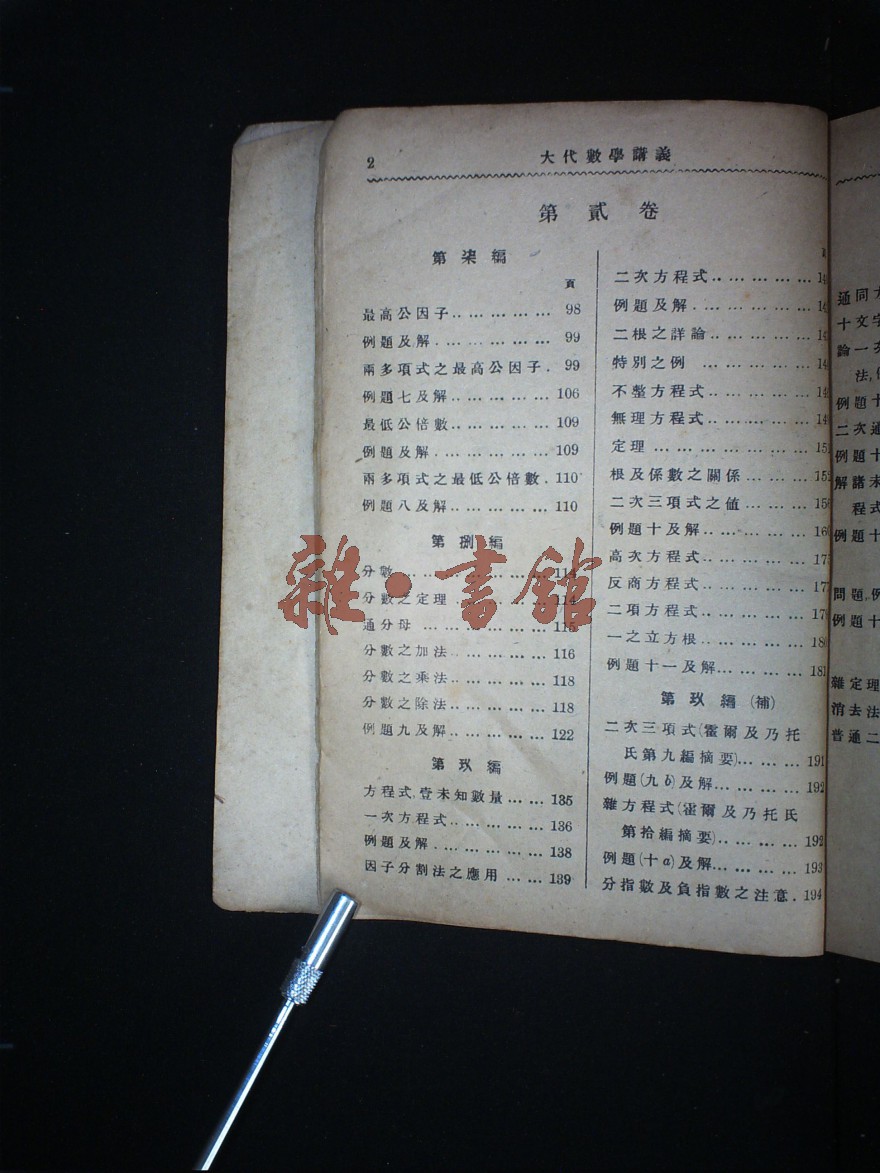 2
大代數學講義
第貳卷
第柒編
頁
最高公因子.. ... ... ... ... 98
例題及解. ... ... ... ... ... 99
兩多項式之最高公因子. 99
例題七及解.. ... ... ... ... 106
最低公倍數.. ... ... ... ... 109
例題及解. ... ... ... ... ... 109
兩多項式之最低公倍數. 110
例題八及解.. ... ... ... ... 110
第捌編
分數
分數之定理 114
通分母 ... ... ... ... ... 115
分數之加法.. ... ... ... ... 116
分數之乘法.. ... ... ... ... 118
分數之除法.. ... ... ... ... 118
例題九及解.. ... ... ... ... 122
第玖編
方程式,壹未知數量 ... ... 135
一次方程式.. ... ... ... ... 136
例題及解. ... ... ... ... ... 138
因子分割法之應用 ... ... 139
二次方程式.. ... ... ... ...
例題及解. ... ... ... ... ...
二根之詳論.. ... ... ... ...
特別之例 ... ... ... ... ...
不整方程式.. ... ... ... ...
無理方程式.. ... ... ... ...
定理 ... ... ... ... ... ...
根及係數之關係 ... ... ...
二次三項式之値 ... ... ...
例題十及解.. ... ... ... ...
高次方程式.. ... ... ... ...
反商方程式.. ... ... ... ...
二項方程式.. ... ... ... ...
一之立方根.. ... ... ... ... 180
例題十一及解... ... ... ... 181
第玖編(補)
二次三項式(霍爾及乃托
氏第九編摘要)... ... ... 191
例題(九b)及解... ... ... ... 192
雜方程式(霍爾及乃托氏
第拾編摘要).. ... ... ... 192
例題(十a)及解... ... ... ... 193
分指數及負指數之注意. 194
通同
十文字
論一次
法,
例題十
二次通
例題十
解諸未
程式
例題十
問題,例
例題十
雜定理
消去法
普通二
雜·書館